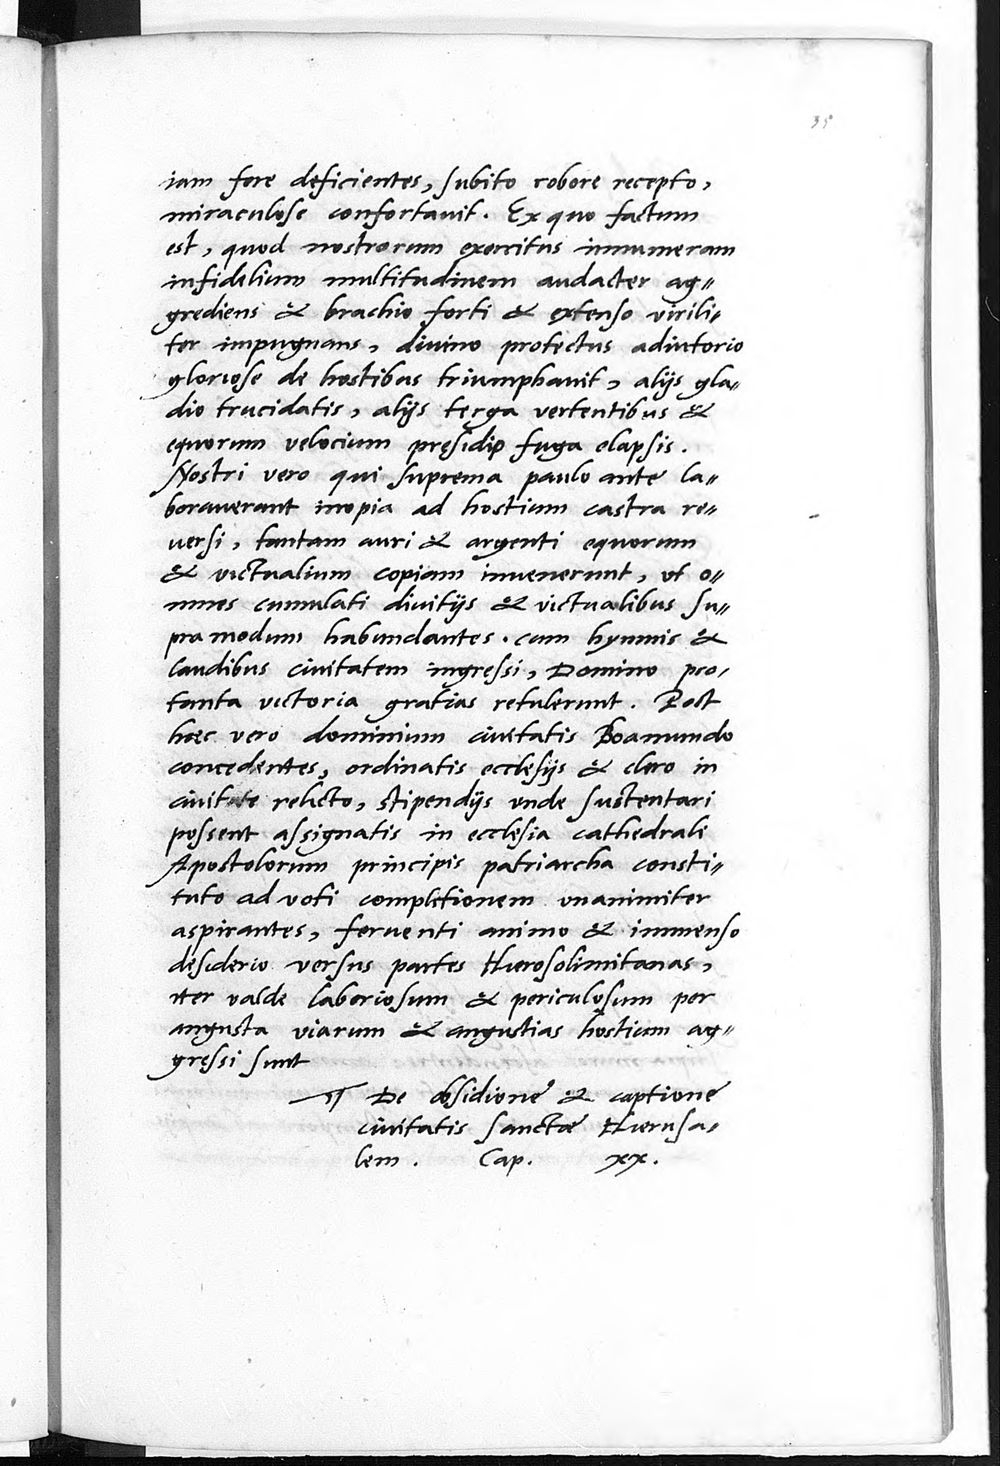 35
iam fere deficientes, subito robore recepto,
miraculose confortauit. Ex quo factum
est, quod nostrorum exercitus innumeram
infidelium multitudinem audacter ag〃
grediens & brachio forti & extenso virili〃
ter impugnans, diuino protectus adiutorio
gloriose de hostibus triumphauit, alijs gla〃
dio trucidatis, alijs terga vertentibus &
equorum velocium presidio fuga elapsis.
Nostri vero qui suprema paulo ante la〃
borauerant inopia ad hostium castra re〃
uersi, tantam auri & argenti equorum
& victualium copiam inuenerunt, vt o〃
mnes cumulati diuitijs & victualibus su〃
pra modum habundantes. cum hymnis &
laudibus ciuitatem ingressi, Domino pro-
tanta victoria gratias retulerunt. Post
haec vero dominium ciuitatis Boamundo
concedentes, ordinatis ecclesijs & clero in
ciuitate relicto, stipendijs vnde sustentari
possent assignatis in ecclesia cathedrali
Apostolorum principis patriarcha consti〃
tuto ad voti completionem vnanimiter
aspirantes, feruenti animo & immenso
desiderio versus partes Hierosolimitanas,
iter valde laboriosum & periculosum per
angusta viarum & angustias hostium ag〃
gressi sunt
¶ De obsidione & captione
ciuitatis sanctae Hierusa〃
lem. Cap. xx.